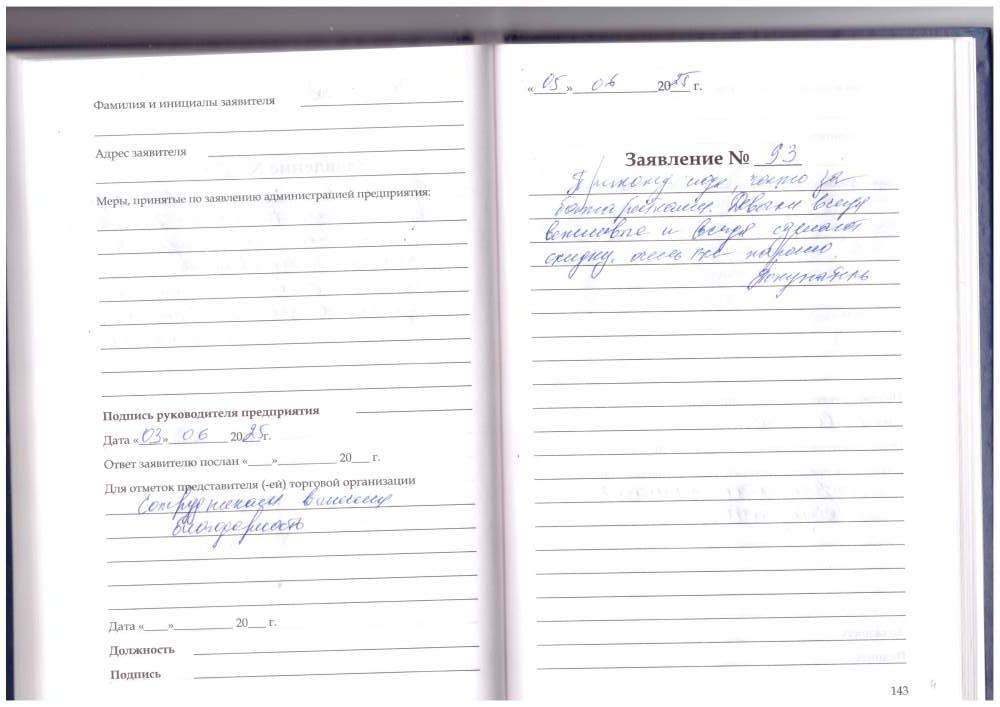 Фамилия и инициалы заявителя
Адрес заявителя
Меры, принятые по заявлению администрацией предприятия:
Подпись руководителя предприятия
Дата «03» 06 2025 г.
Ответ заявителю послан «___»__________ 20___ г.
Для отметок представителя (-ей) торговой организации
Сотрудникам вынесена
благодарность
Дата «____»__________ 20___ г.
Должность
Подпись
«05» 06 2025 г.
Заявление № 93
Прихожу сюда, часто за
батарейками. Девочки всегда
вежливые и всегда сделают
скидку, очень хорошо.
Покупатель
143